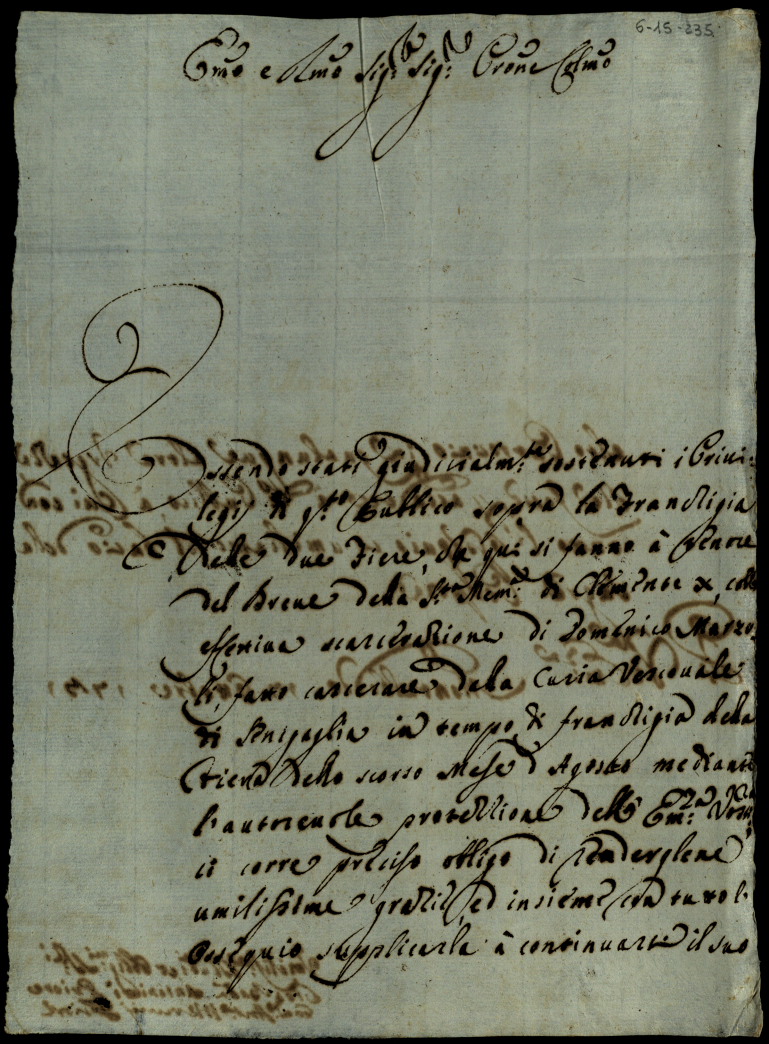 6-15-235
Em̃o e Rm̃o Sig.r Sig.r Prone Colm̃o
Essendo stati giudicialm.te sostenuti i Privi-
legij di q.to Publico sopra la Franchigia
delle due Fiere, che qui si fanno à tenore
del Breve della S.ta Mem.a di Clemente X, colla
effettiva scarcerazione di Domenico Marzo
li, fatto carcerare dalla Curia Vescovale
di Sinigaglia in tempo di franchigia della
Fiera dello scorso Mese d'Agosto mediante
l'autorevole protezzione dell' Em.za Vra
ci corre preciso obligo di renderglene
umilissime grazie, ed insieme con tutto l'
ossequio supplicarla à continuarci il suo